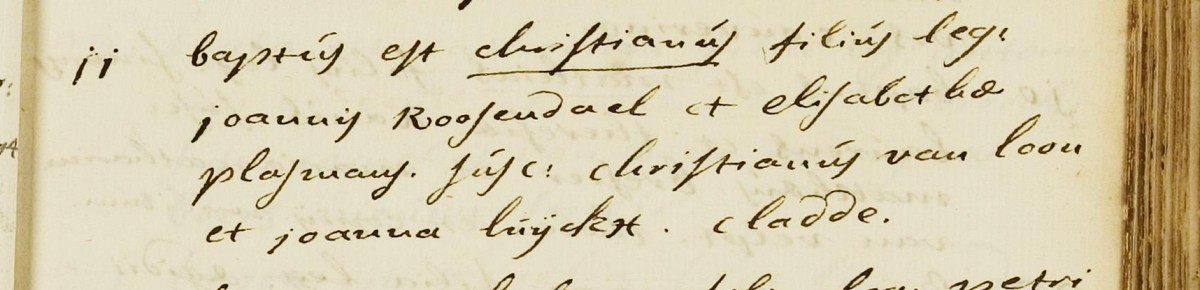 11 baptus est christianus filius leg:
joannis Roosendael et elisabethæ
plasmans. susc: christianus van loon
et joanna luÿckx. cladde.
petri